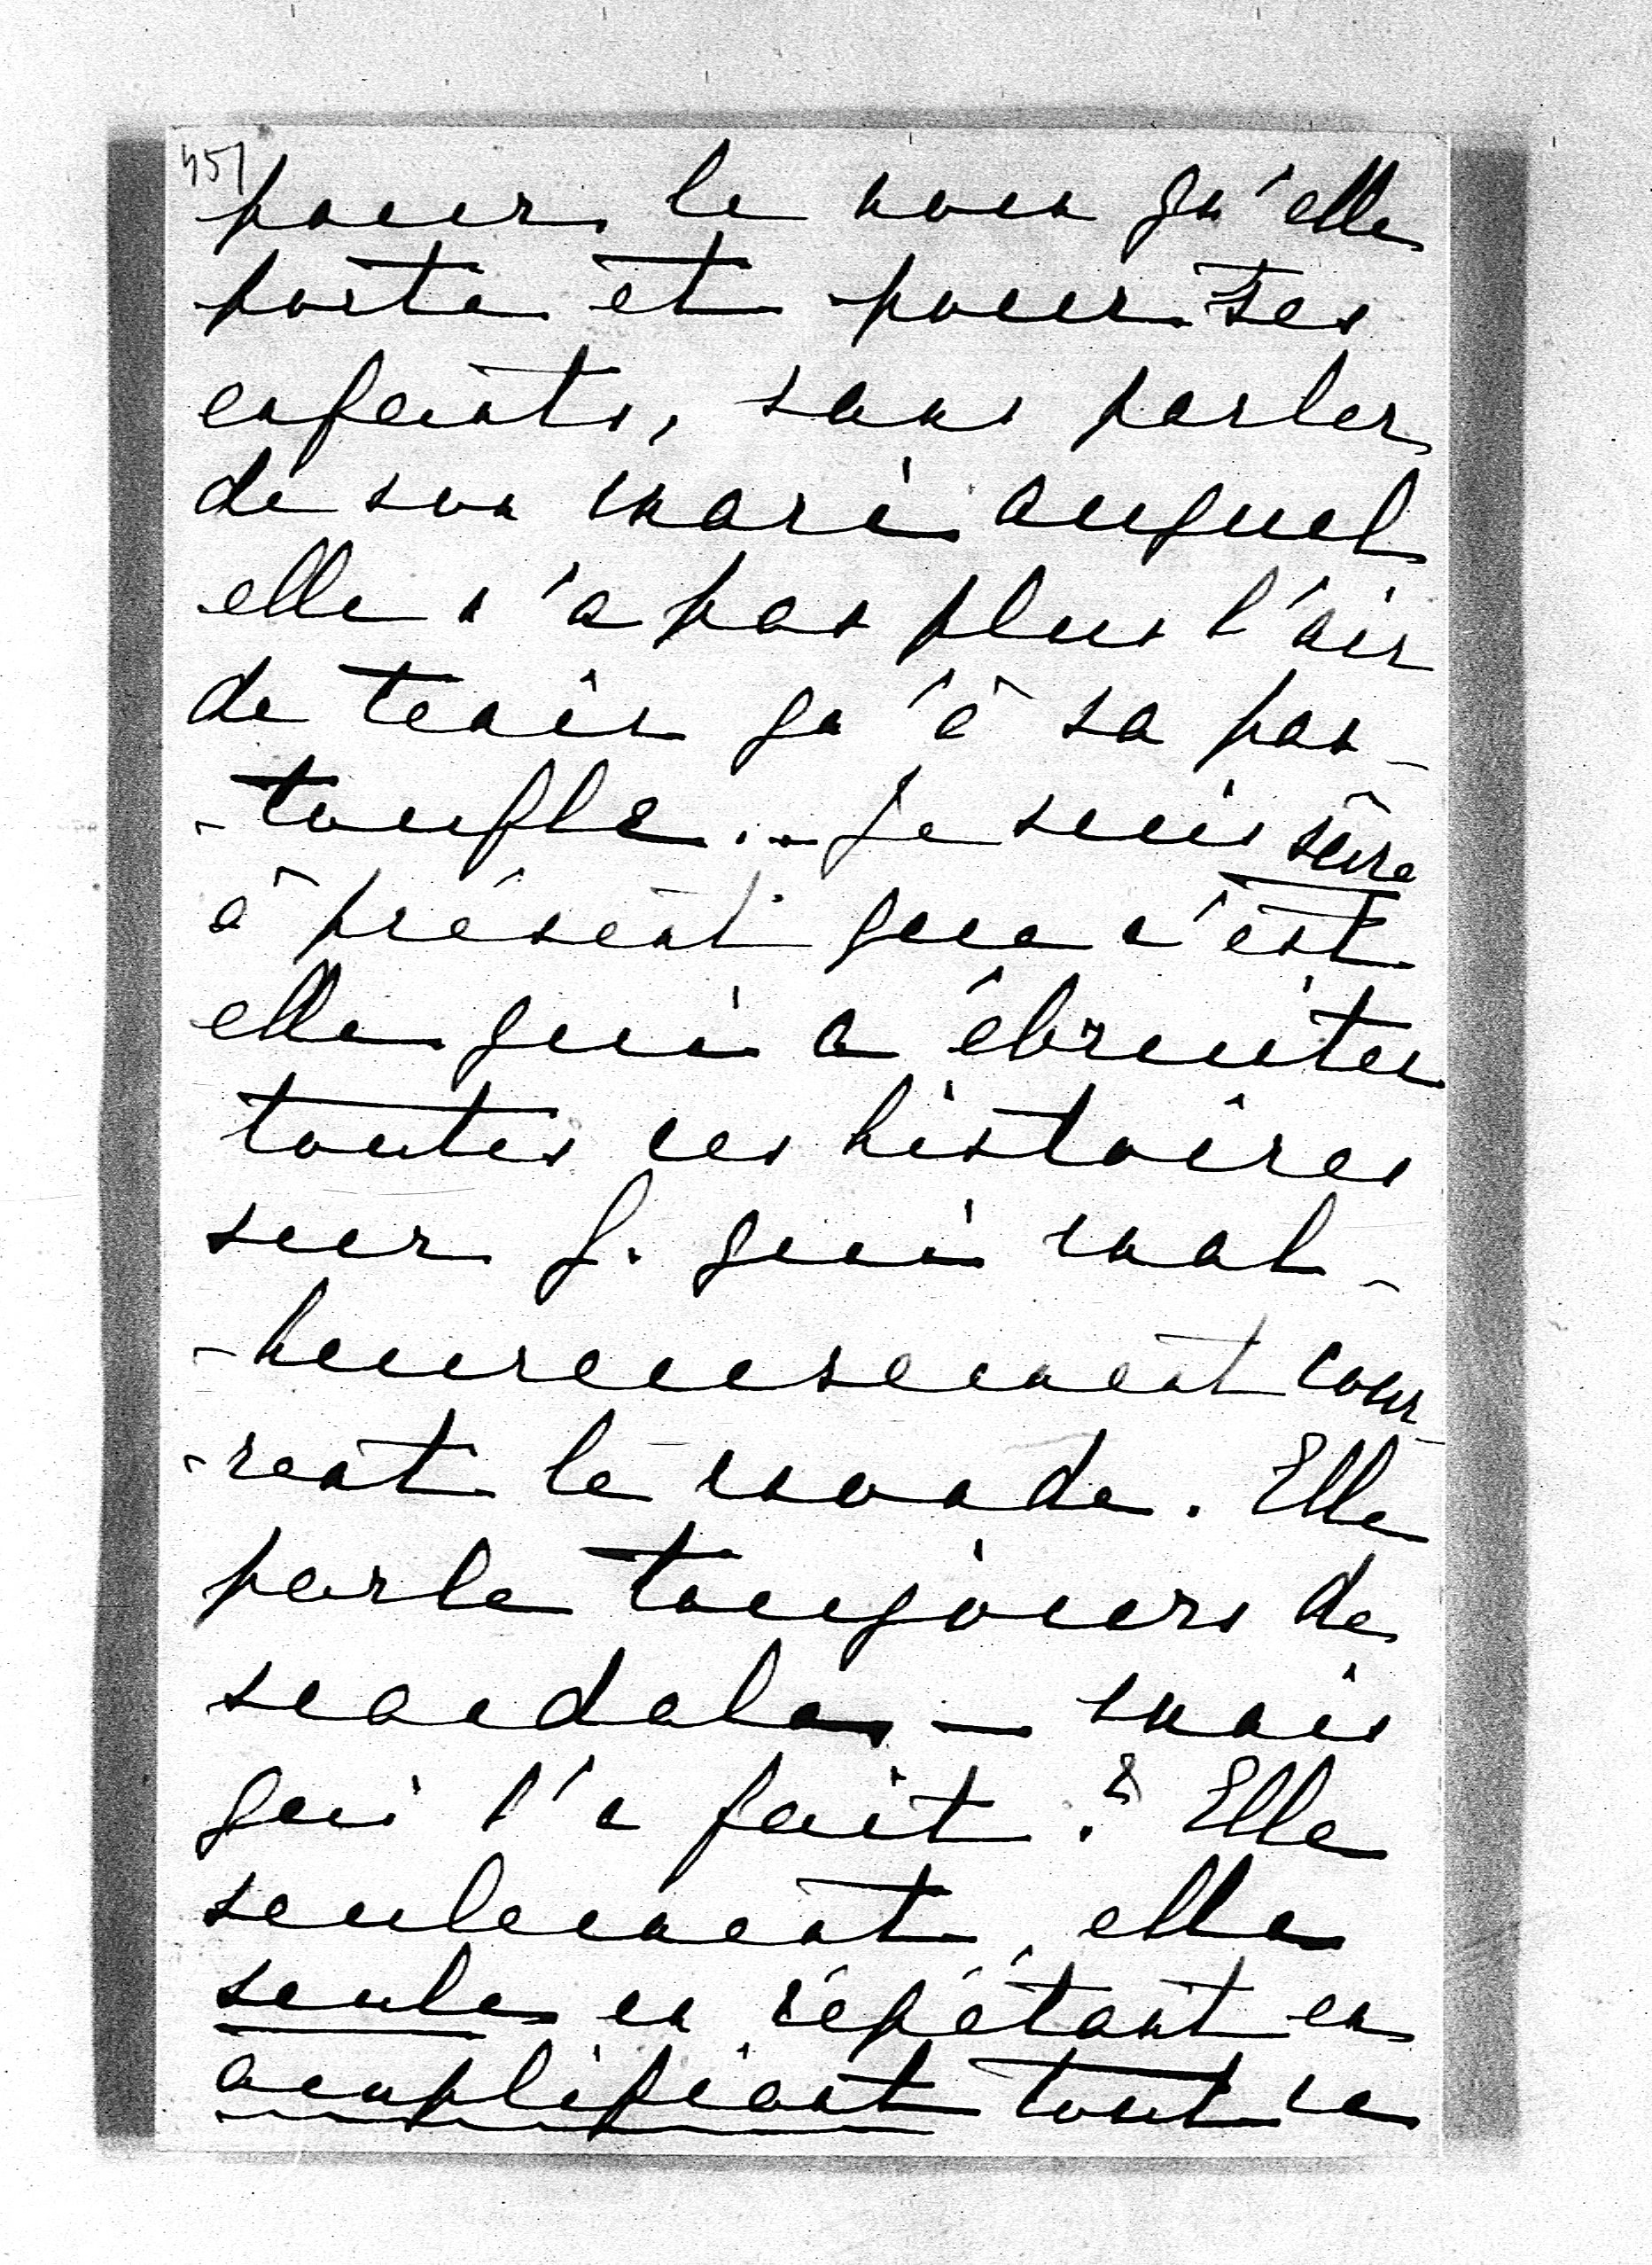 45)
pour le nom qu'elle
porte et pour ses
enfants, sans parler
de son mari auquel
elle n'a pas plus l'air
de tenir qu'à sa pan-
-toufle... Je suis sûre
à présent que c'est
elle qui a ébruiter
toutes ces histoires
sur J. qui mal-
-heureusement cour-
-rent le monde. Elle
parle toujours de
scandales — mais
qui l'a fait? Elle
seulement, elle
seule en répétant en
amplifiant tout ce